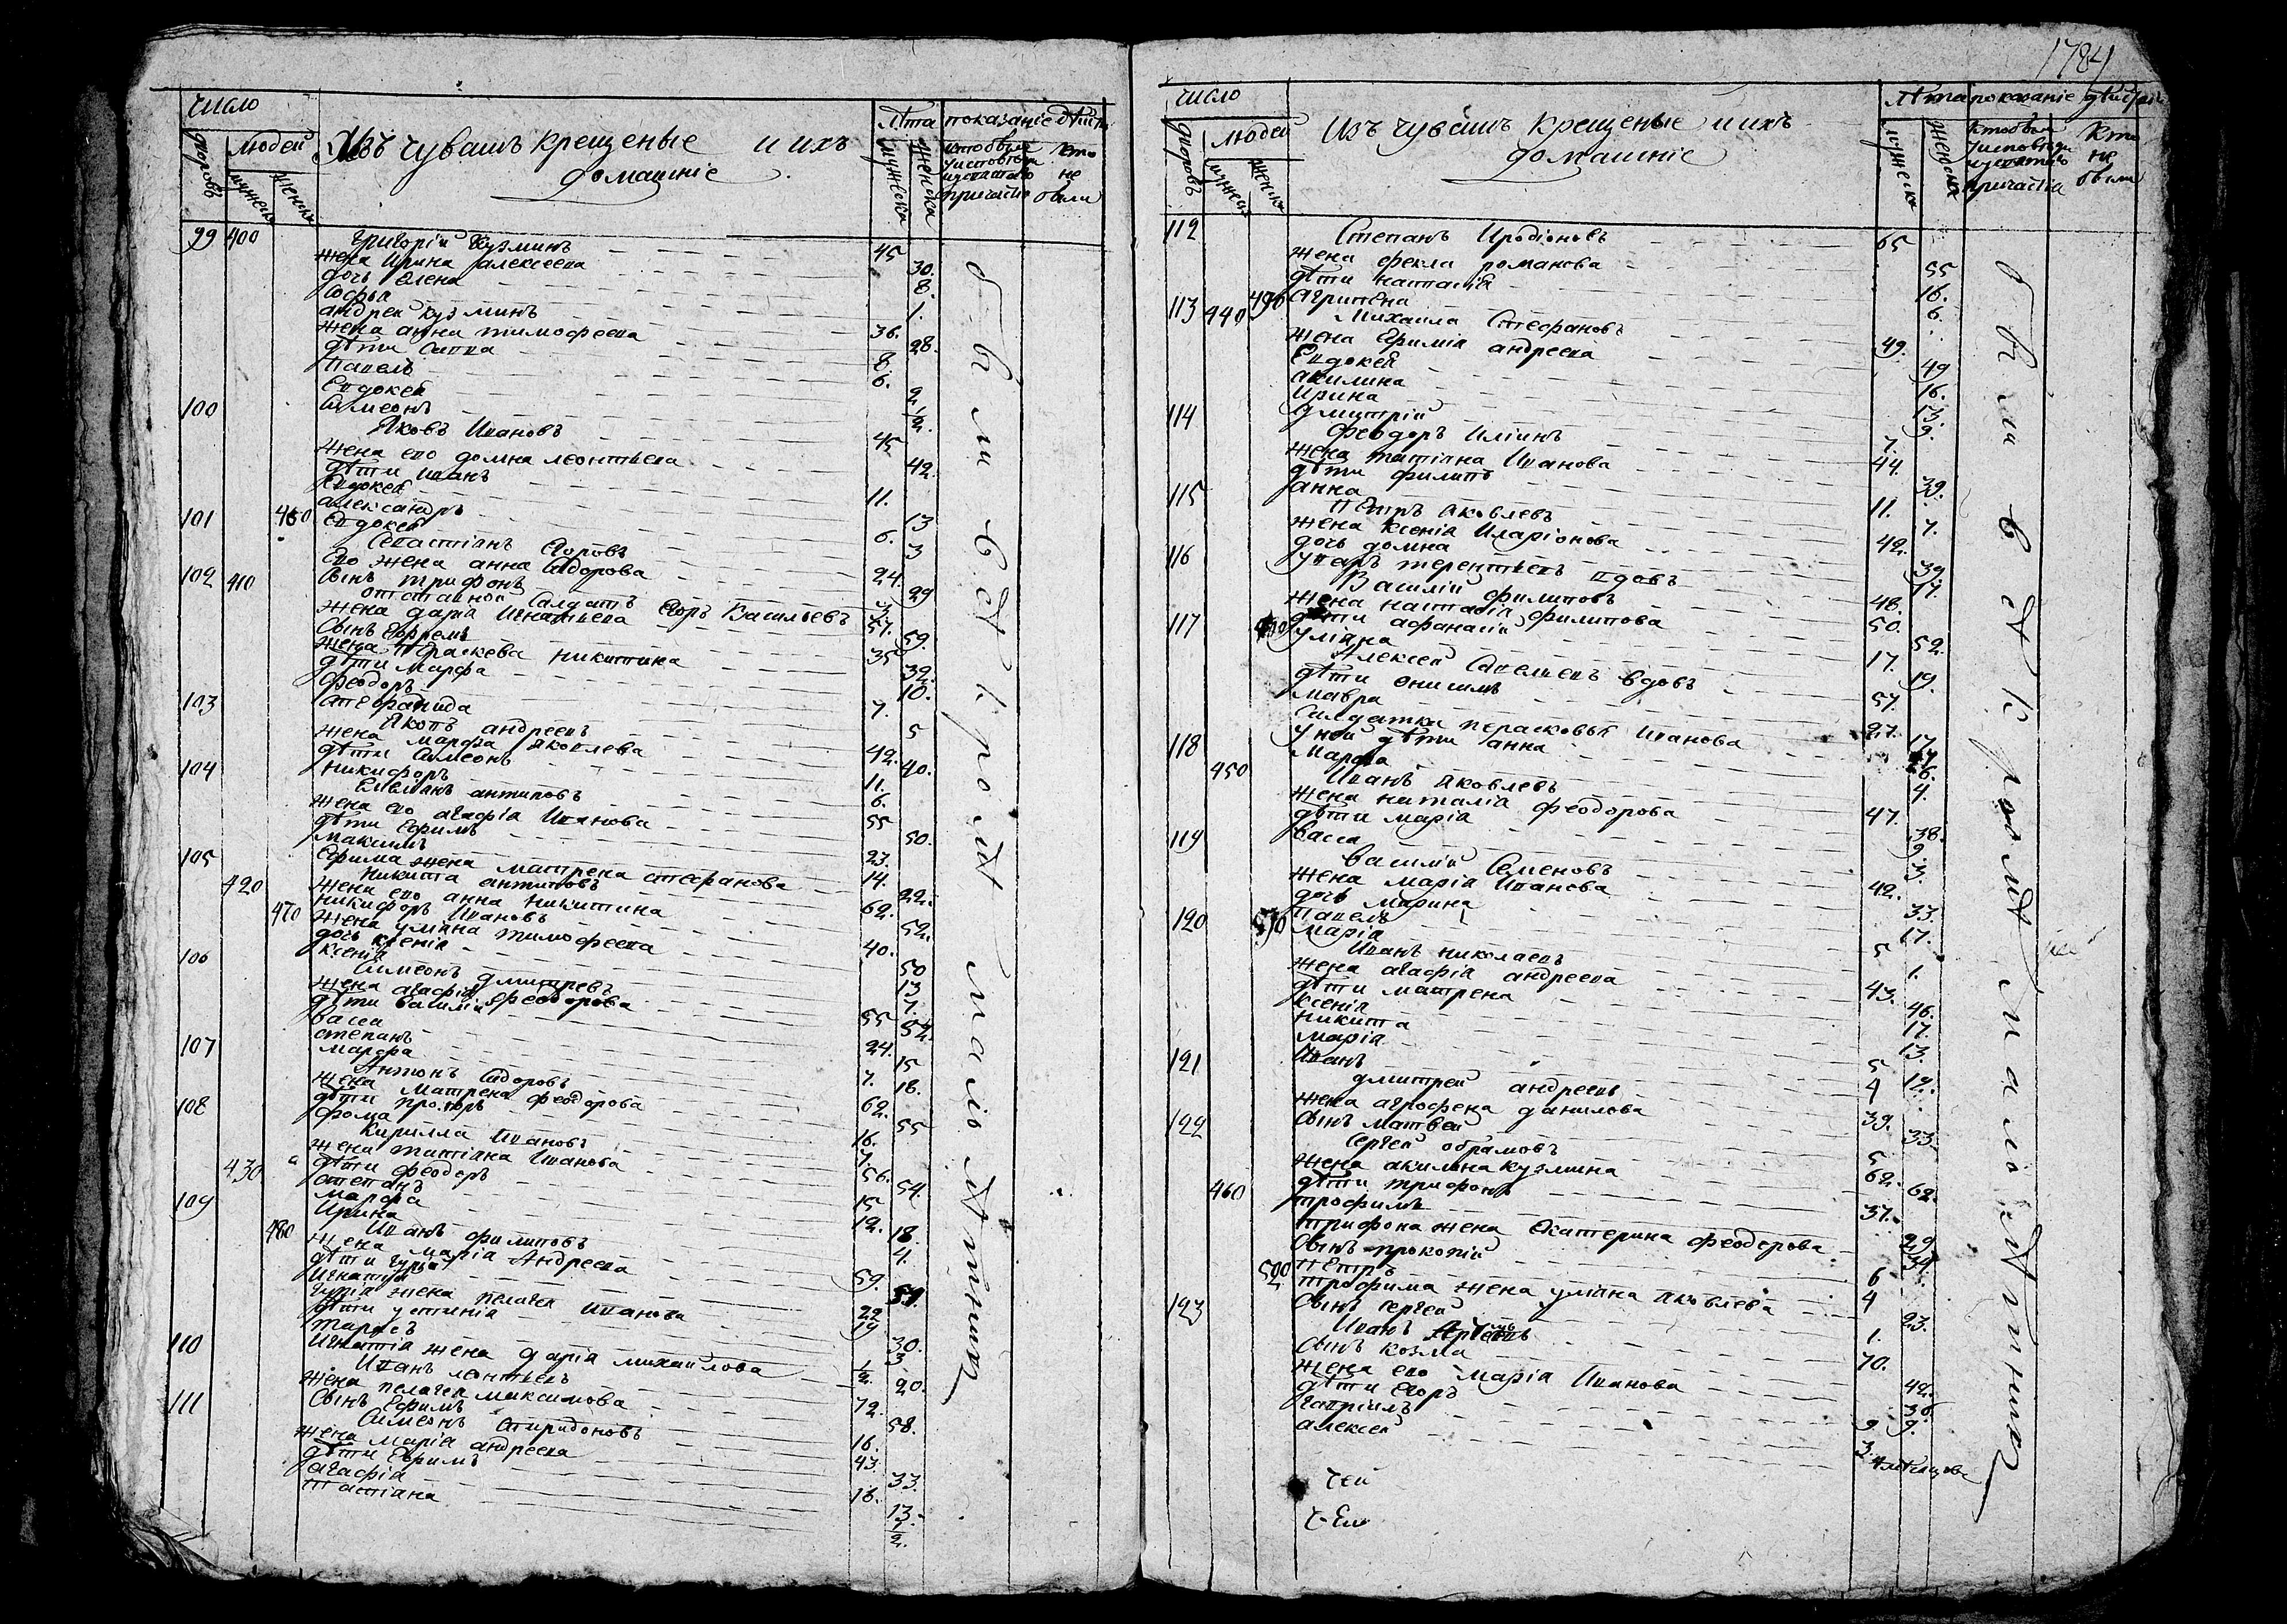 число
дворовъ
людей
мужеска
женска
Изъ чувашъ крещеные и ихъ
домашніе
Лѣта
мужеска
женска
показаніе дѣист
кто былъ
у исповѣди
и святаго
причастія
кто
не
были
99 400
Григоріи Кузминъ 45
жена Ирина алексеева 30.
дочь Елена 8.
Софья 1.
андреи кузминъ 36.
жена анна тимофеева 28.
дѣти Савва 8
Павелъ 6.
Евдокея 2
Симеонъ 1/2.
100
Яковъ Ивановъ 45
жена его домна леонтьева 42.
дѣти иванъ 11.
Евдокея 13
александръ 6.
460 Евдокея 3
101
Севастіанъ Егоровъ 24.
Его жена анна Сидорова 29
Сынъ трифонъ 3
102 410
отставной Салдатъ Егоръ Васильевъ 57.
жена дарія Игнатьева 59.
Сынъ Ефремъ 35
жена Параскева никитина 32.
дѣти марфа 10.
феодоръ 7.
Стефанида 5
103
Яковъ андреевъ 42.
жена марфа Яковлева 40.
дѣти Симеонъ 11.
никифоръ 6.
104
Емельянъ антиповъ 55
жена его агафія Иванова 50.
дѣти Ефимъ 23.
максимъ 14.
Ефима жена матрена стефанова 22.
105
Никита антиповъ 62.
420
жена его анна никитина 52.
никифоръ Ивановъ 40.
470 жена уліяна тимофеева 50
дочь ксенія 13
ксенія 7.
106
Симеонъ дмитревъ 55
жена агафія феодорова 52.
дѣти василіи 24.
васса 15
степанъ 7.
марфа 16.
107
Антонъ Сидоровъ 62.
жена Матрена феодорова 55
дѣти прохоръ 16.
фома 7.
108
Кирилла Ивановъ 56.
жена татіяна Иванова 54.
430 дѣти феодоръ 15
степанъ 12.
марфа 18.
Ирина 4.
109
Иванъ филиповъ 59.
480 жена марія Андреева 57.
дѣти гурья 22
Игнатіи 19
гурія жена пелагея Иванова 30.
дѣти устинія 3
тарасъ 1/2.
Игнатія жена дарія михаилова 20.
110
Иванъ леонтьевъ 72.
жена пелагея максимова 58.
Сынъ Ефимъ 16.
111
Симеонъ Спиридоновъ 43.
жена марія андреева 33.
дѣти Ефримъ 16.
агафія 13.
татіана 1/2.
были все кроме малолѣтныхъ
1784
число
дворовъ
людей
мужеска
женска
Изъ чувашъ крещеные и ихъ
домашніе
лѣта
мужеска
женска
показаніе дѣист
кто былъ
у исповѣди
и святаго
причастія
кто
не
были
112
Степанъ Иродіоновъ 65
жена фекла романова 55
дѣти настасія 16.
490 агрипена 6.
113 440
Михаила Стефановъ 49.
жена Ефимія андреева 49
Евдокея 16.
акилина 13.
Ирина 9.
дмитріи 7.
114
Феодоръ Иліинъ 44.
жена татіяна Иванова 39.
дѣти филипъ 11.
анна 7.
115
Петръ Яковлевъ 42.
жена ксенія Иларіонова 39.
дочь домна 17.
уваръ терентьевъ вдовъ 48.
116
Василіи филиповъ 50.
жена настасія филипова 52.
дѣти афанасіи 17.
уліяна 19.
117
Алексеи Савельевъ вдовъ 57.
дѣти онисимъ 27.
мавра 17
Салдатка перасковья Иванова
у ней дѣти анна 6.
Марфа 4.
118 450
Иванъ Яковлевъ 47.
жена наталія феодорова 38.
дѣти марія 9.
васса 3.
119
Василіи Семеновъ 42.
жена марія Иванова 33.
дочь марина 17.
Павелъ 5
510 марія 1.
120
Иванъ николаевъ 43.
жена агафія андреева 46.
дѣти матрена 17.
ксенія 13.
никита 5
марія 12.
Иванъ 4
121
дмитреи андреевъ 39.
жена агрофена данилова 33.
Сынъ матвеи 5
122
Сергеи обрамовъ 62.
жена акилина кузмина 62.
460 дѣти трифонъ 37.
трофимъ 29
трифона жена Екатерина феодорова 34.
Сынъ прокопіи 6
Петръ 4
520 трофима жена уліяна яковлева 23.
Сынъ сергеи 1.
123
Иванъ 70.
Сынъ козма 42.
жена его марія Иванова 36
дѣти Егоръ 9.
гавріилъ 3.
алексеи 4 месяцовъ
были все кроме малолѣтныхъ